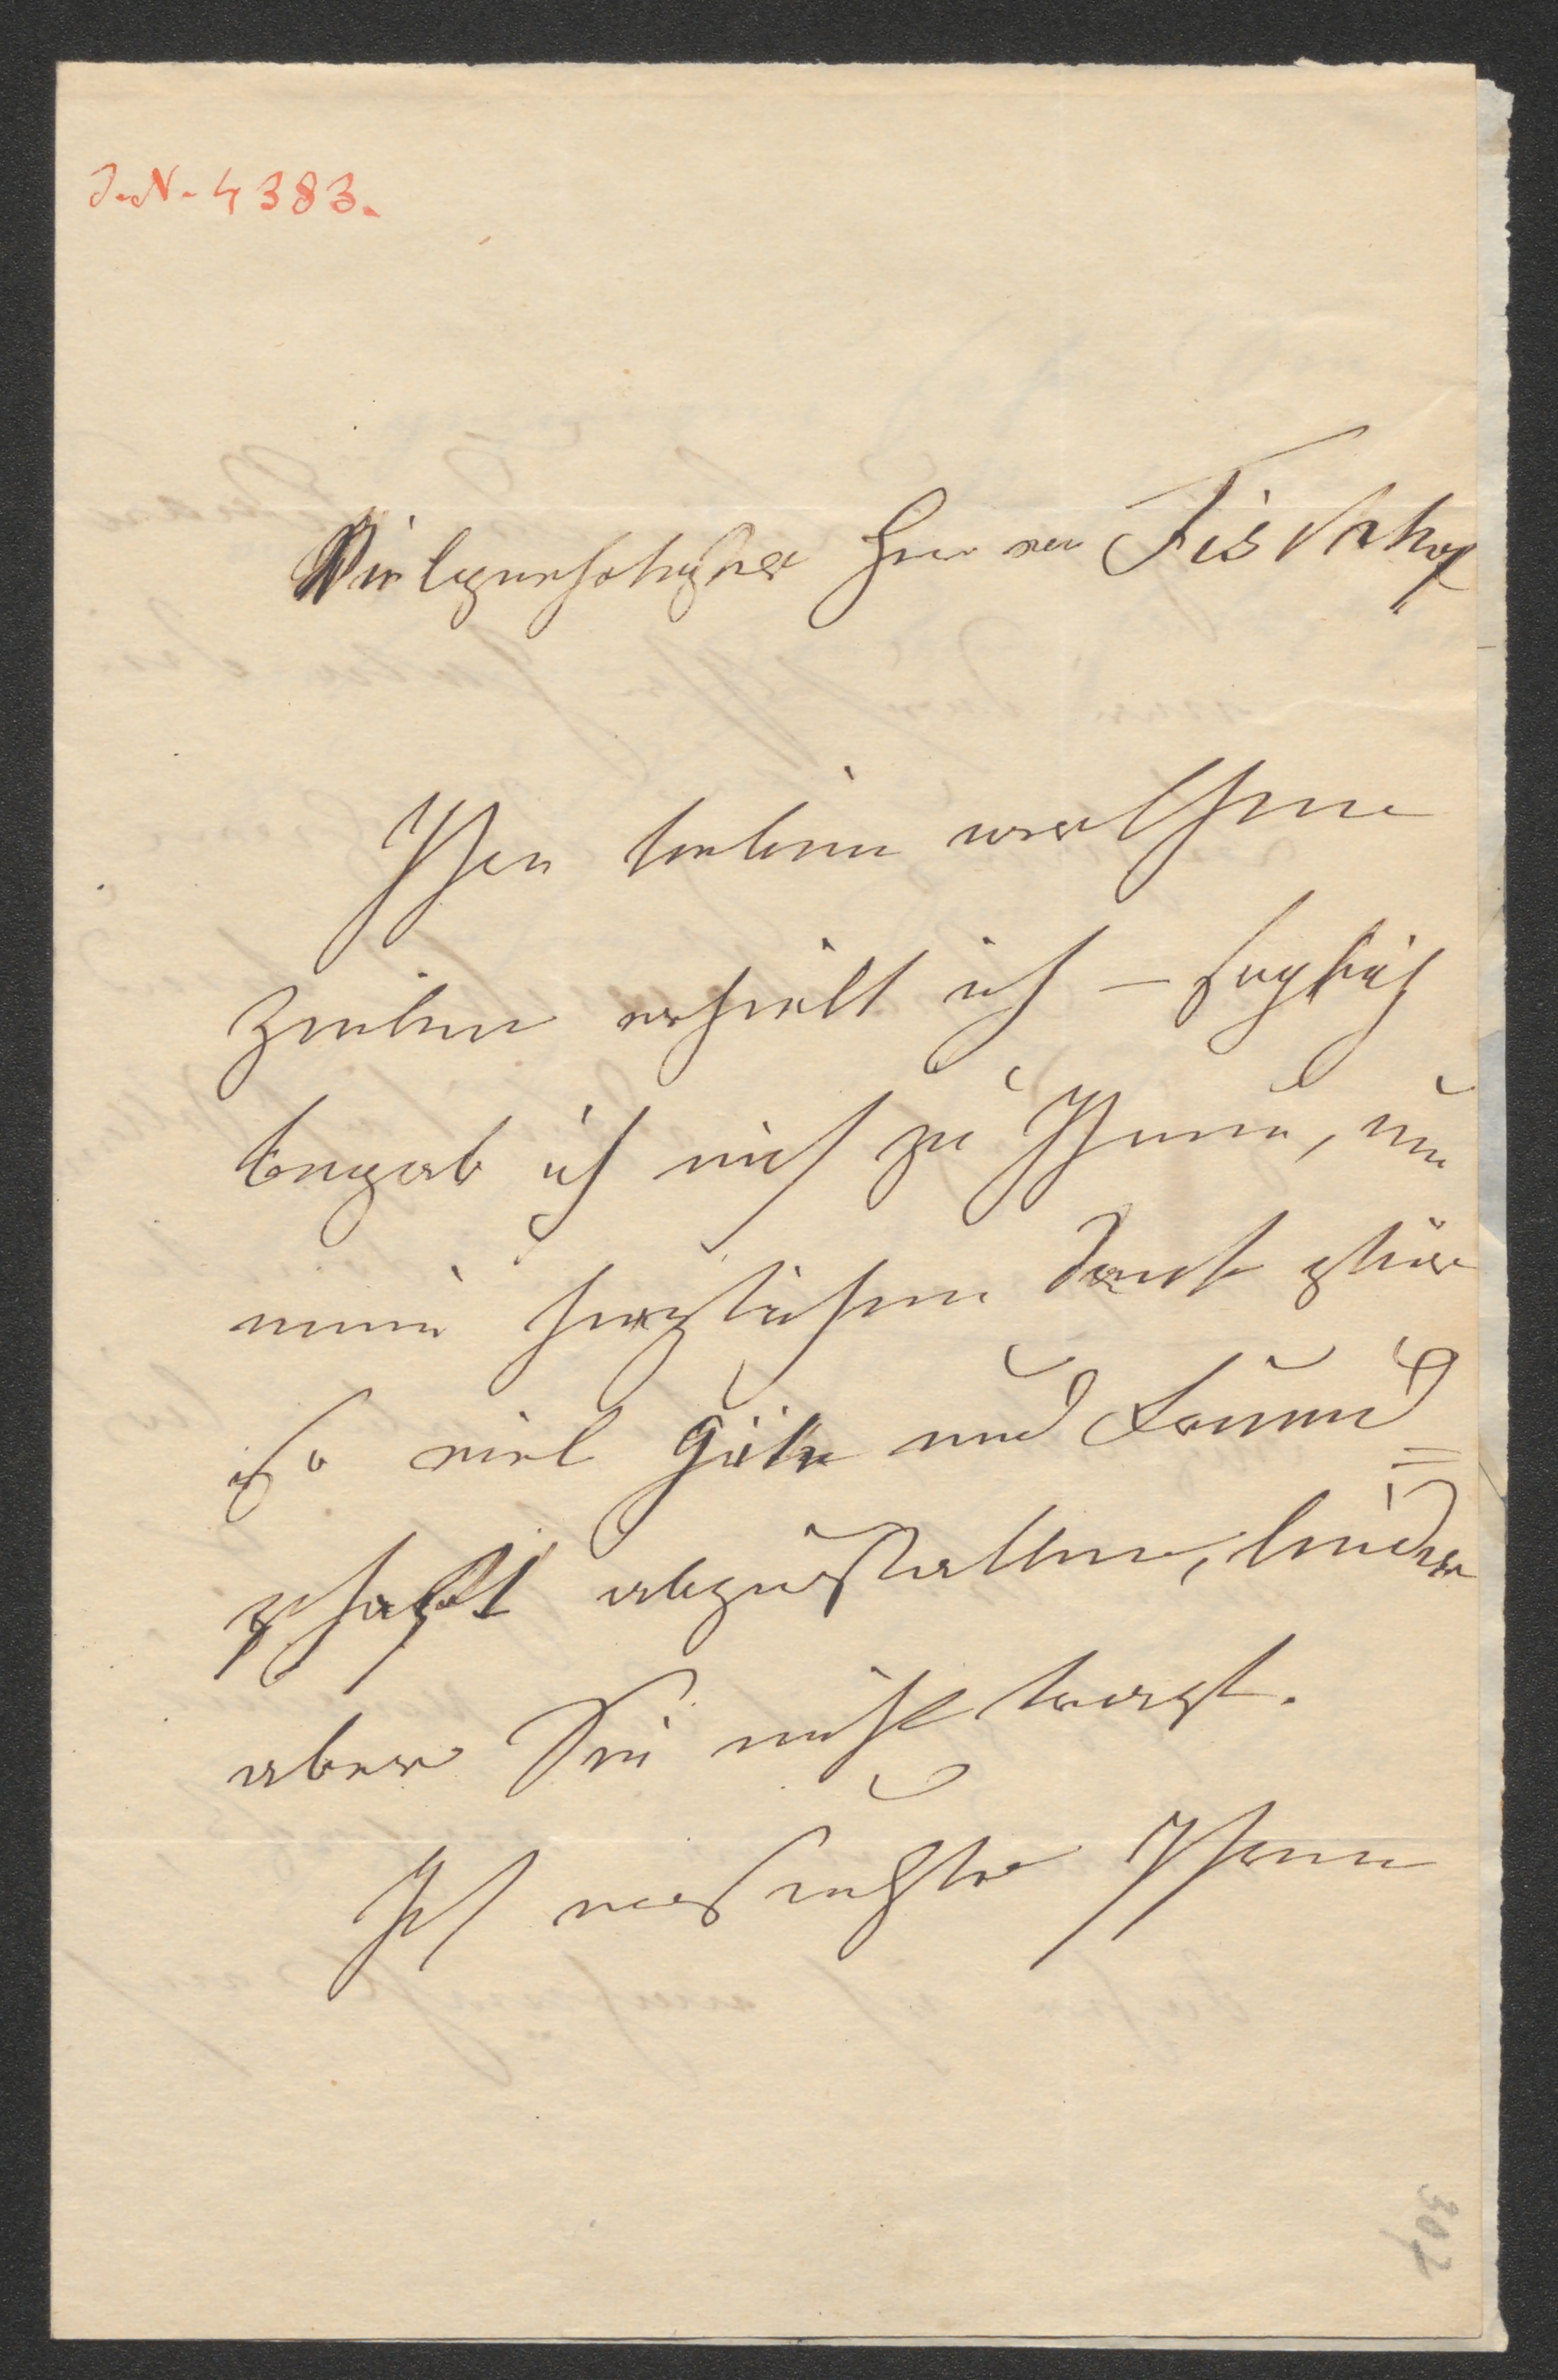 J. N. 4383.
Vielgeschätzter Herr von Fischhof
Ihre lieben werthen
Zeilen erhielt ich – sogleich
begab ich mich zu Ihnen, um
meine herzlichen Dank für
so viel Güte und Freund=
schaft abzustatten, leider
aber Sie nicht traf.
Ich ersuchte Ihnen
302